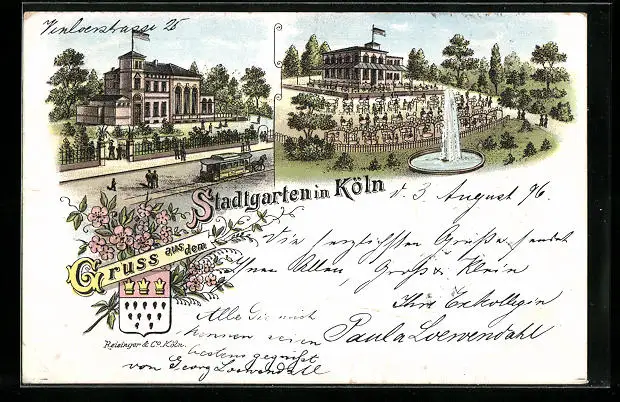 Venloerstrasse 25
Stadtgarten in Köln
v. 3 August 96.
Gruss aus dem
Die herzlichsten Grüße sendet
Ihnen Allen, Groß & Klein
Ihre Exkollegin
Paula Loewendahl
Alle die mich
kennen seien
bestens gegrüßt
von Georg Loewendahl
Reisinger & Co. Köln.